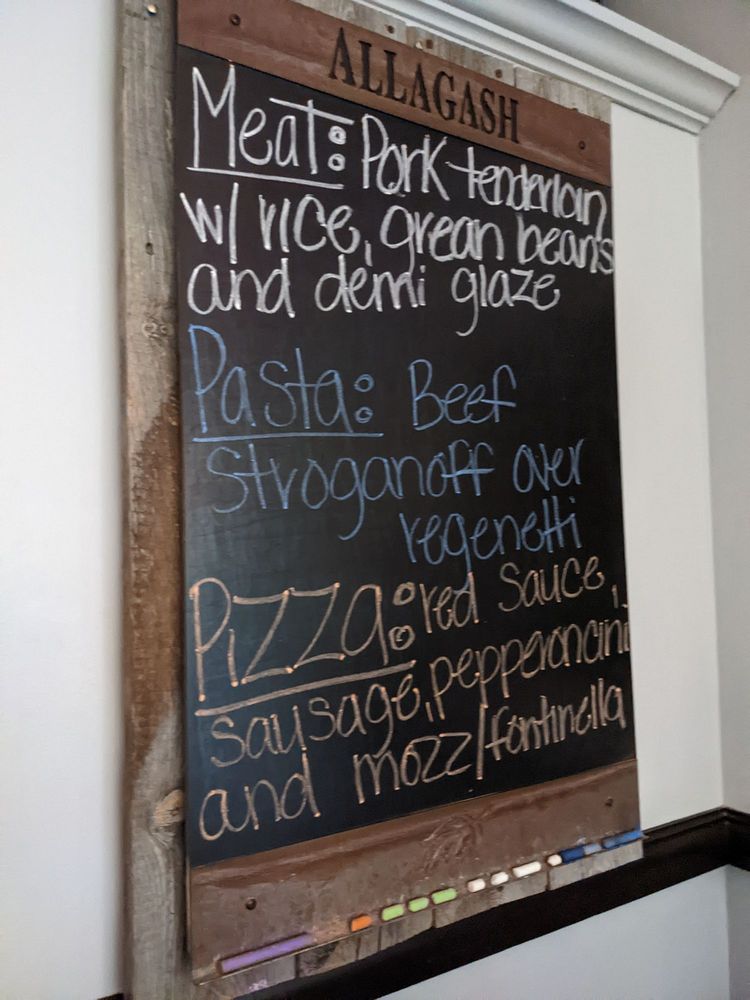 ALLAGASH
Meat: Pork tenderloin
w/ rice, grean beans
and demi glaze
Pasta: Beef
stroganoff over
regenetti
Pizza: red sauce,
sausage, pepperoncini
and mozz/fontinella